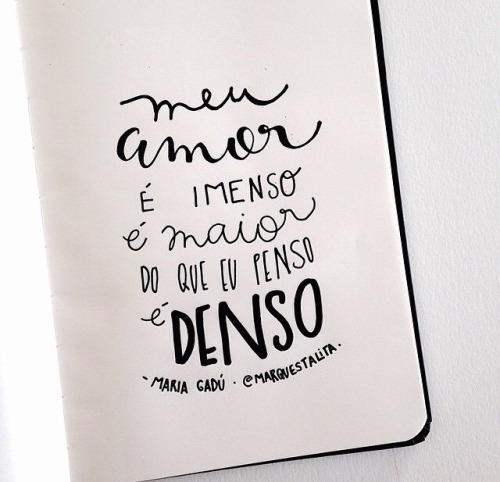 meu
amor
É IMENSO
é maior
DO QUE EU PENSO
é DENSO
- MARIA GADÚ · @MARQUESTALITA·